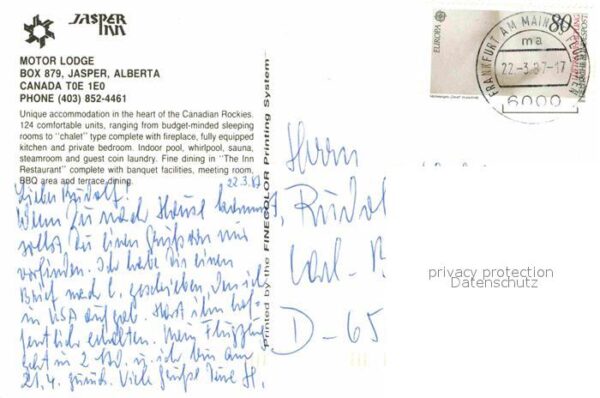 JASPER
INN
MOTOR LODGE
BOX 879, JASPER, ALBERTA
CANADA T0E 1E0
PHONE (403) 852-4461
Unique accommodation in the heart of the Canadian Rockies.
124 comfortable units, ranging from budget-minded sleeping
rooms to "chalet" type complete with fireplace, fully equipped
kitchen and private bedroom. Indoor pool, whirlpool, sauna,
steamroom and guest coin laundry. Fine dining in "The Inn
Restaurant" complete with banquet facilities, meeting room,
BBQ area and terrace dining.
22.3.87
Lieber Rudolf!
Wenn Du nach Hause kommst,
sollst Du einen Gruß von mir
vorfinden. Ich habe Dir einen
Brief nach L. geschrieben, den ich
in USA aufgab. Hast ihn hof-
fentlich erhalten. Mein Flugzeug
geht in 2 Std. u. ich bin am
21.4. zurück. Viele Grüße Deine H.
Printed by the FINECOLOR Printing System
EUROPA
80
FRANKFURT AM MAIN
ma
22.-3.87-17
6000
Herrn
Rudol
Carl-
D-65
privacy protection
Datenschutz